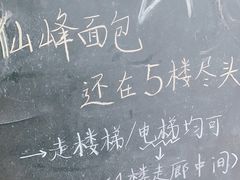 仙峰面包
还在5楼尽头
→走楼梯/电梯均可
↓
楼走廊中间)